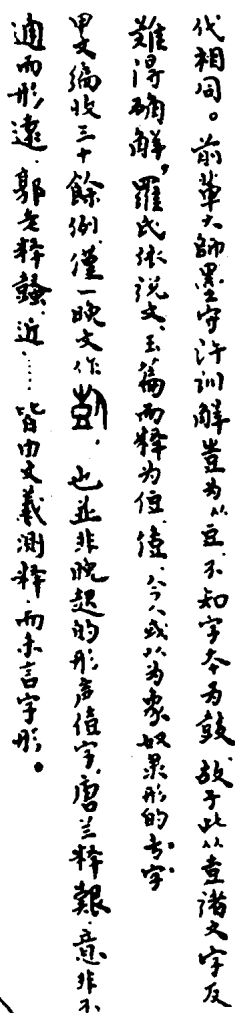 代相同。前辈大師墨守許訓解壴为从豆、不知字本为鼓、故于此从壴諸文字反
難得确解，羅氏依说文、玉篇而释为侸、偅、今人或以为象奴隶形的专字
甲文编收三十餘例、僅一晚文作、也並非晚起的形声值字、唐兰释艱、意非不
適而形遠、郭老释蟗、近……皆由文義測释、而未言字形。